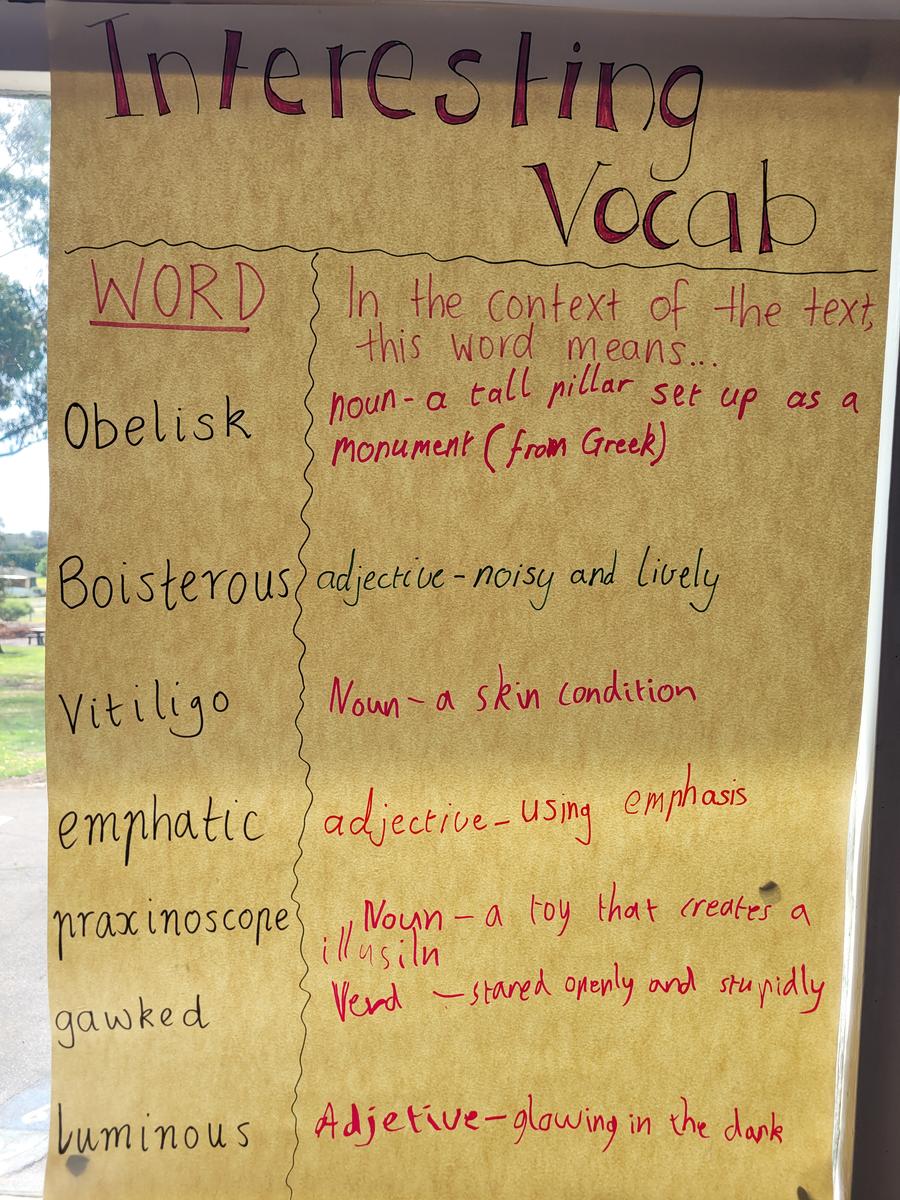 Interesting
Vocab
WORD
In the context of the text,
this word means...
Obelisk
noun - a tall pillar set up as a
monument (from Greek)
Boisterous
adjective - noisy and lively
Vitiligo
Noun - a skin condition
emphatic
adjective - using emphasis
praxinoscope
Noun - a toy that creates a
illusiln
gawked
Verd - stared openly and stupidly
Luminous
Adjetive - glowing in the dark